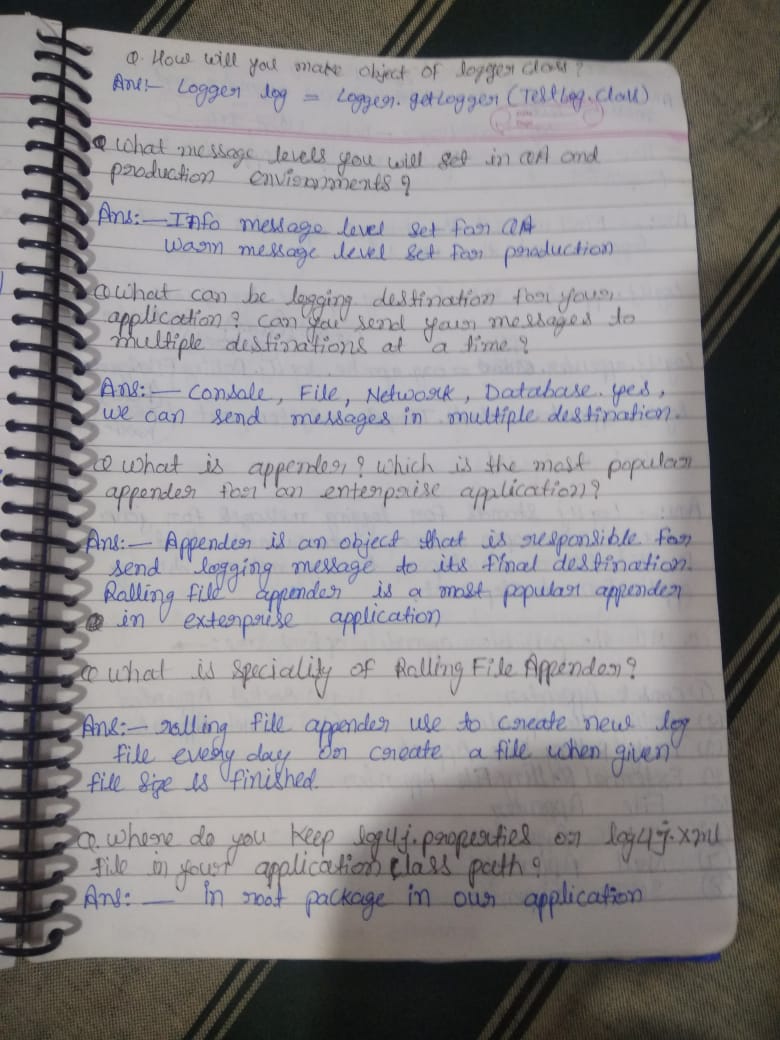 Q. How will you make object of logger class?
Ans:- Logger log = Logger.getLogger (TestLog.class)
Q What message levels you will set in QA and
production enviornments?
Ans:- Info message level set for QA
Warn message level set for production
Q What can be logging destination for your
application? can you send your messages to
multiple destinations at a time?
Ans:- Console, File, Network, Database. yes,
we can send messages in multiple destination.
Q What is appender? which is the most popular
appender for an enterprise application?
Ans:- Appender is an object that is responsible for
send logging message to its final destination.
Rolling file appender is a most popular appender
in exterprise application
Q what is Speciality of Rolling File Appender?
Ans:- rolling file appender use to create new log
file every day or create a file when given
file size is finished.
Q. where do you keep log4j.properties or log4j.xml
file in your application class path?
Ans:- in root package in our application